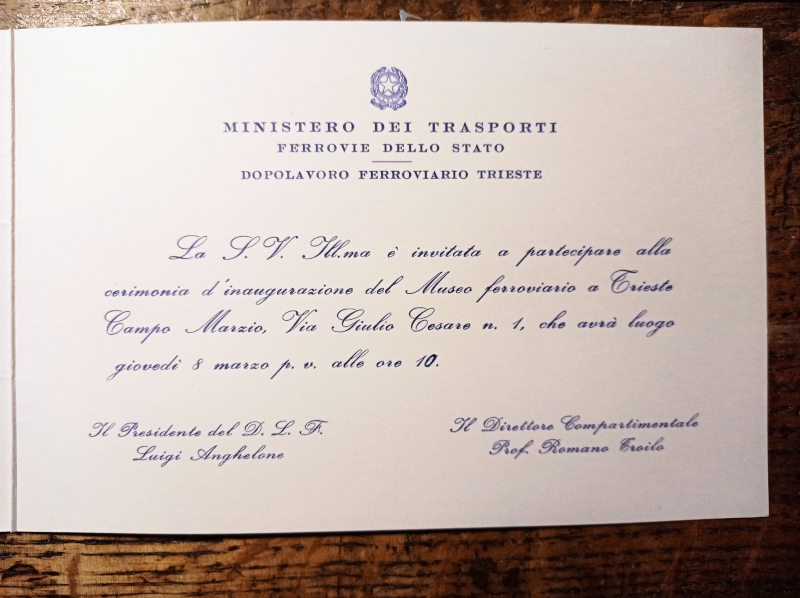 MINISTERO DEI TRASPORTI
FERROVIE DELLO STATO
DOPOLAVORO FERROVIARIO TRIESTE
La S. V. Ill.ma è invitata a partecipare alla
cerimonia d'inaugurazione del Museo ferroviario a Trieste
Campo Marzio, Via Giulio Cesare n. 1, che avrà luogo
giovedì 8 marzo p. v. alle ore 10.
Il Presidente del D. L. F.
Luigi Anghelone
Il Direttore Compartimentale
Prof. Romano Troilo